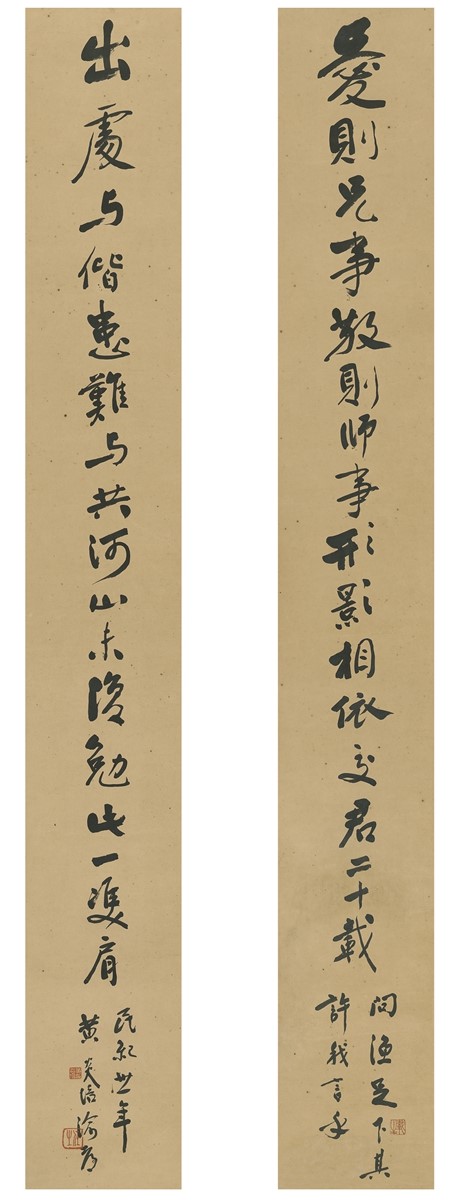 愛則兄事敬則師事形影相依交君二十載
問漁足下其
許我言乎
出處与偕患難与共河山未復勉此一雙肩
民紀卅年
黄炎培渝高